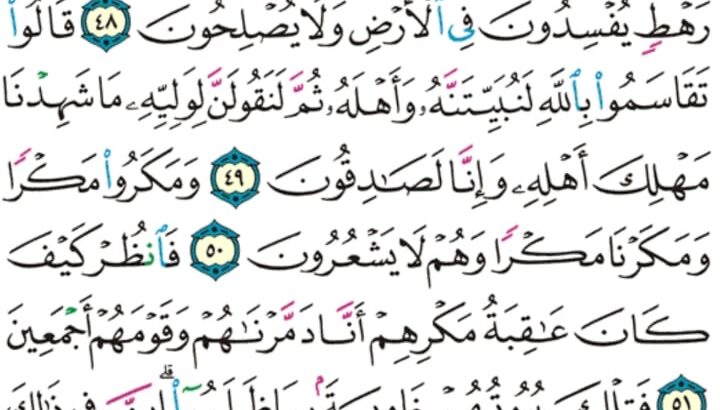 رَهْطٍ يُفْسِدُونَ فِي ٱلْأَرْضِ وَلَا يُصْلِحُونَ ٤٨ قَالُوا۟
تَقَاسَمُوا۟ بِٱللَّهِ لَنُبَيِّتَنَّهُۥ وَأَهْلَهُۥ ثُمَّ لَنَقُولَنَّ لِوَلِيِّهِۦ مَا شَهِدْنَا
مَهْلِكَ أَهْلِهِۦ وَإِنَّا لَصَٰدِقُونَ ٤٩ وَمَكَرُوا۟ مَكْرًا
وَمَكَرْنَا مَكْرًا وَهُمْ لَا يَشْعُرُونَ ٥٠ فَٱنظُرْ كَيْفَ
كَانَ عَٰقِبَةُ مَكْرِهِمْ أَنَّا دَمَّرْنَٰهُمْ وَقَوْمَهُمْ أَجْمَعِينَ
٥١ فَتِلْكَ بُيُوتُهُمْ خَاوِيَةًۢ بِمَا ظَلَمُوٓا۟ ۗ إِنَّ فِي ذَٰلِكَ